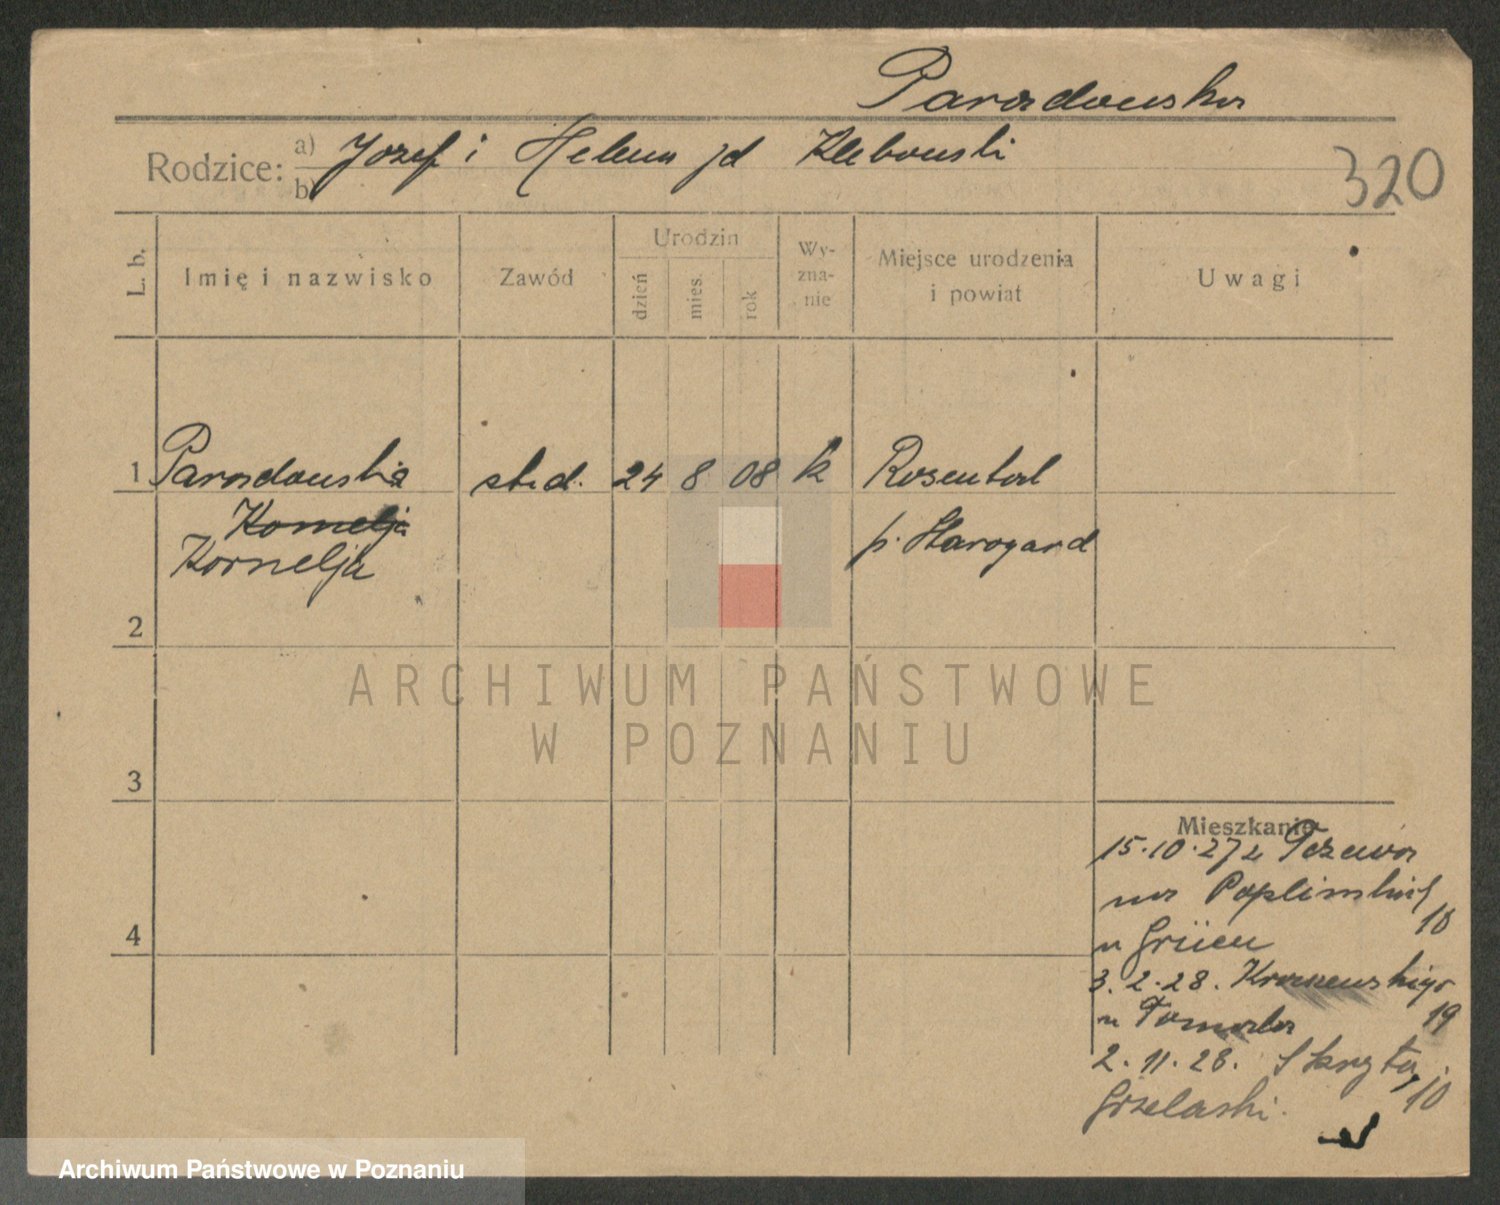 Paradowska
Rodzice: a) Jozef i Helena jd Klebowski
b)
320
L. b.
Imię i nazwisko
Zawód
Urodzin
dzień
mies.
rok
Wy-
zna-
nie
Miejsce urodzenia
i powiat
Uwagi
1 Paradowska stud. 24 8 08 k Rosental
Kornelja p. Starogard
Kornelja
2
ARCHIWUM PAŃSTWOWE
W POZNANIU
3
4
Mieszkanie
15.10.27 z Tczewa
na Poplińskich
10
u Grüen
3.2.28. Kraszewskiego
19
u Tomaska
2.11.28. Skryta
10
Grzelaski.
Archiwum Państwowe w Poznaniu